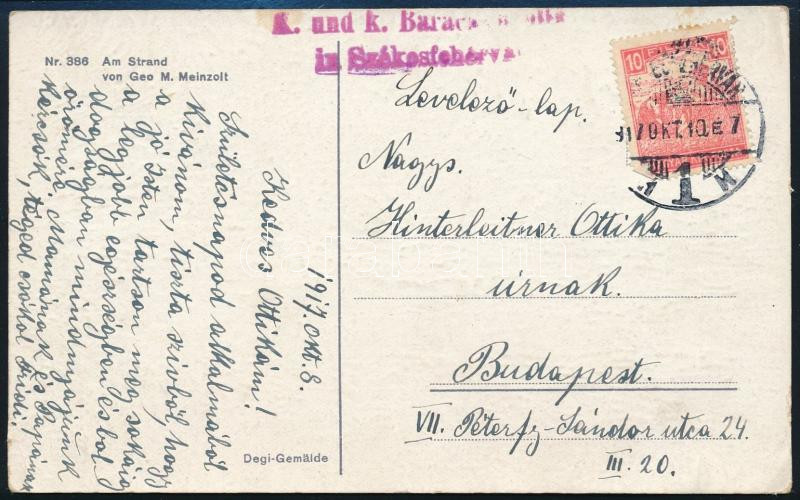 K. und k. Barac
in Székesfehérvá
Nr. 386 Am Strand
von Geo M. Meinzolt
10
917 OKT. 10. E 7
1
1917. okt. 8.
Kedves Ottikám!
Születésnapod alkalmából
kívánom, tiszta szívből, hogy
a jó Isten tartson meg sokáig
a legjobb egészségben és bol-
dogságban mindnyájunk
örömére. Mamának és Papának
kézcsók, téged csókol
Degi-Gemälde
Levelező-lap.
Nagys.
Hinterleitner Ottika
úrnak.
Budapest.
VII. Péterfy-Sándor utca 24.
III. 20.